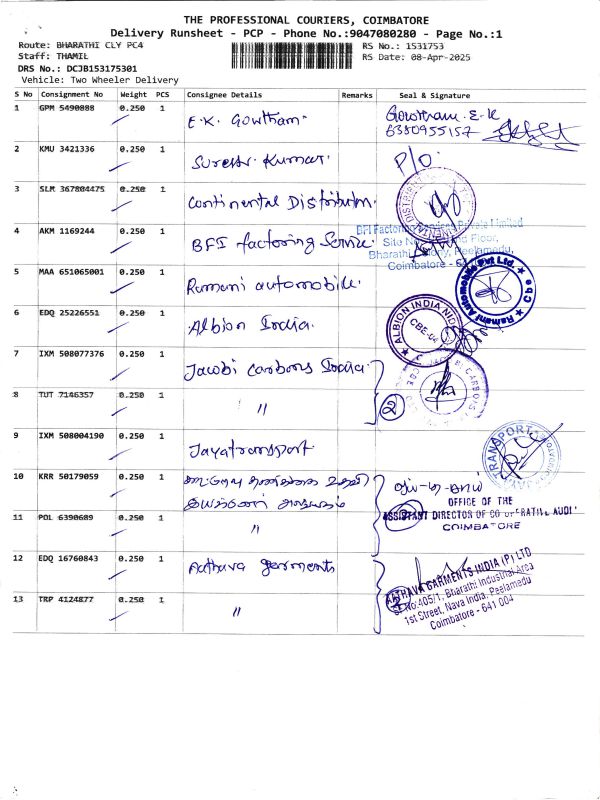 THE PROFESSIONAL COURIERS, COIMBATORE
Delivery Runsheet - PCP - Phone No.:9047080280 - Page No.:1
Route: BHARATHI CLY PC4
RS No.: 1531753
Staff: THAMIL
RS Date: 08-Apr-2025
DRS No.: DCJB153175301
Vehicle: Two Wheeler Delivery
S No Consignment No Weight PCS Consignee Details Remarks Seal & Signature
1 GPM 5490888 0.250 1 E.K. Gowtham. Gowtham. E-K
6380955157
2 KMU 3421336 0.250 1 Suresh. Kumar. P/o.
3 SLM 367804475 0.250 1 Continental Distributon.
4 AKM 1169244 0.250 1 BFI factoring Service.
BFI Factoring Private Limited
Site No Floor,
Bharathi Colony, Peelamedu,
Coimbatore - 
5 MAA 651065001 0.250 1 Ramani automobile. Ramani Automobile Pvt Ltd. ★ Cbe ★
6 EDQ 25226551 0.250 1 Albion India. ALBION INDIA CBE-04
7 IXM 508077376 0.250 1 Jacobi Carbons India. CARBONS
8 TUT 7146357 0.250 1 " 2
9 IXM 508004190 0.250 1 Jayatransport. TRANSPORT
10 KRR 50179059 0.250 1 கூட்டுறவு தணிக்கை உதவி
இயக்குனர் அலுவலகம்
OFFICE OF THE
ASSISTANT DIRECTOR OF CO OPERATIVE AUDIT
COIMBATORE
11 POL 6390689 0.250 1 "
12 EDQ 16760843 0.250 1 Aathava garments
AATHAVA GARMENTS INDIA (P) LTD
Sf No:405/1, Bharathi Industrial Area
1st Street, Nava India, Peelamedu
Coimbatore - 641 004
13 TRP 4124877 0.250 1 " 2